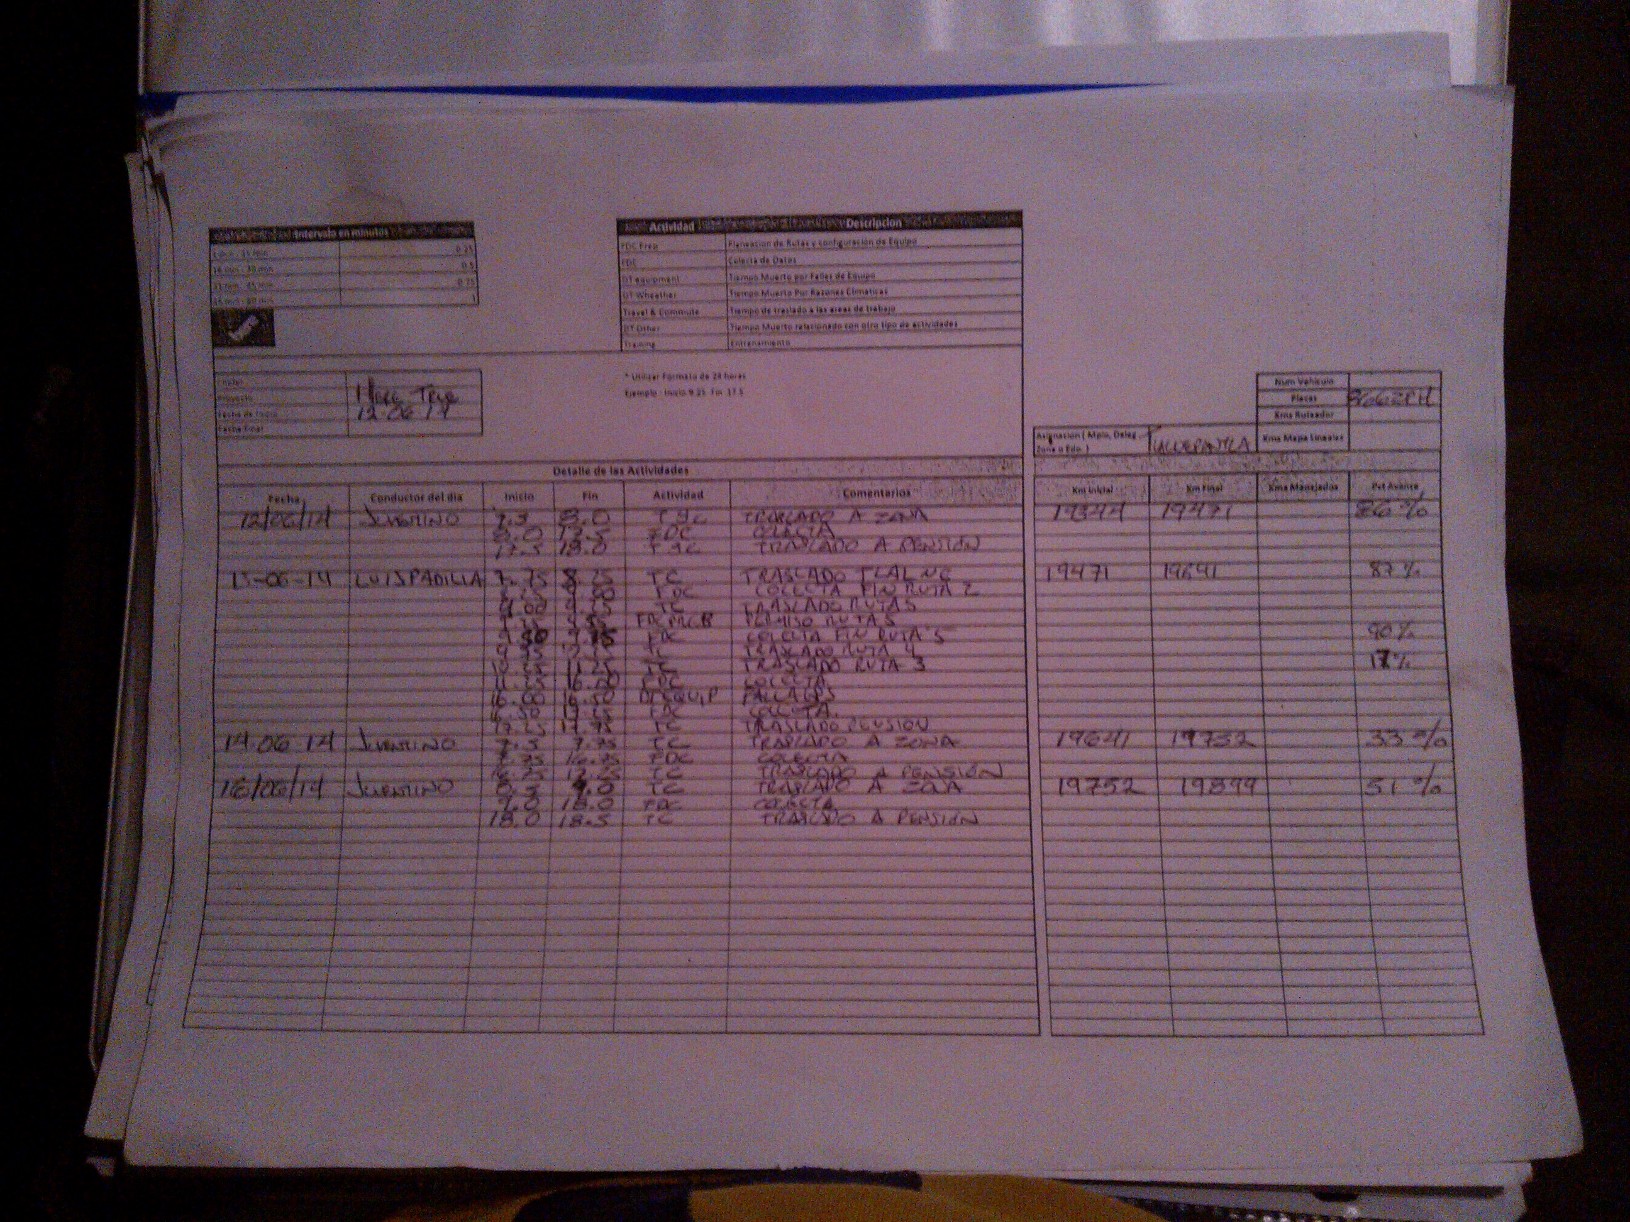 Intervalo en minutos
0.25
0.5
0.75
1
Actividad Descripcion
FDC Prep Planeacion de Rutas y configuracion de Equipo
FDC Colecta de Datos
DT equipment Tiempo Muerto por Fallas de Equipo
DT Wheather Tiempo Muerto Por Razones Climaticas
Travel & Commute Tiempo de traslado a las areas de trabajo
DT Other Tiempo Muerto relacionado con otro tipo de actividades
Training Entrenamiento
* Utilizar Formato de 24 horas
Ejemplo - Inicio 9.25 Fin 17.5
Proyecto
Fecha de Inicio 12-06 14
Fecha final
Num Vehiculo
Placas
Kms Ruteador
Kms Mapa Lineales
Asignacion ( Mpio, Deleg
Zona o Edo. )
Detalle de las Actividades
Fecha Conductor del dia Inicio Fin Actividad Comentarios Km Inicial Km Final Kms Manejados Pct Avance
12/06/14 JUVENTINO 7.5 8.0 T&C TRASLADO A ZONA 19344 19471 86%
8.0 17.5 FDC COLECTA
17.5 18.0 T&C TRASLADO A PENSIÓN
13-06-14 LUIS PADILLA 7.75 8.25 TC TRASLADO TLALNE 19471 19641 87%
FDC COLECTA FIN RUTA 2
9.00 TC TRASLADO RUTA 5
PERMISO RUTA 5
FDC COLECTA FIN RUTA 5 90%
TC TRASLADO RUTA 4
11.25 TC TRASLADO RUTA 3 17%
FDC COLECTA
16.00 16.50 DT EQUIP FALLA GPS
FDC COLECTA
17.75 TC TRASLADO PENSION
14.06 14 JUVENTINO 7.5 7.75 TC TRASLADO A ZONA 19641 19752 33%
7.75 16.75 FDC COLECTA
16.75 TC TRASLADO A PENSIÓN
16/06/14 JUVENTINO 8.5 9.0 TC TRASLADO A ZONA 19752 19899 51%
9.0 18.0 FDC COLECTA
18.0 18.5 TC TRASLADO A PENSIÓN